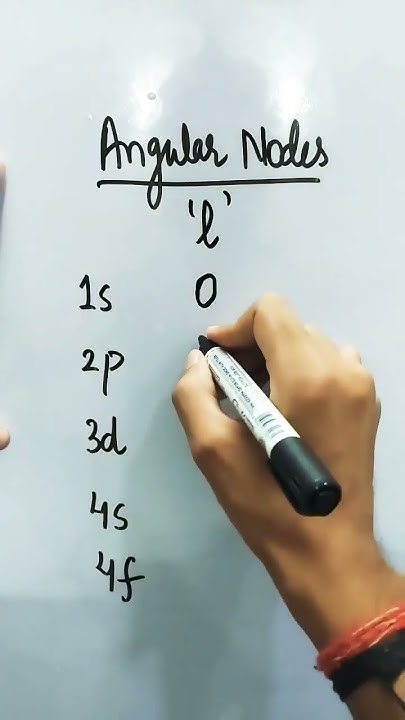 Angular Nodes
'l'
1s 0
2p
3d
4s
4f